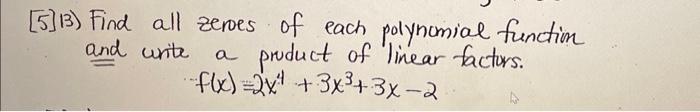 [5] 13) Find all zeroes of each polynomial function
and write a product of linear factors.
f(x) = 2x⁴ + 3x³ + 3x - 2